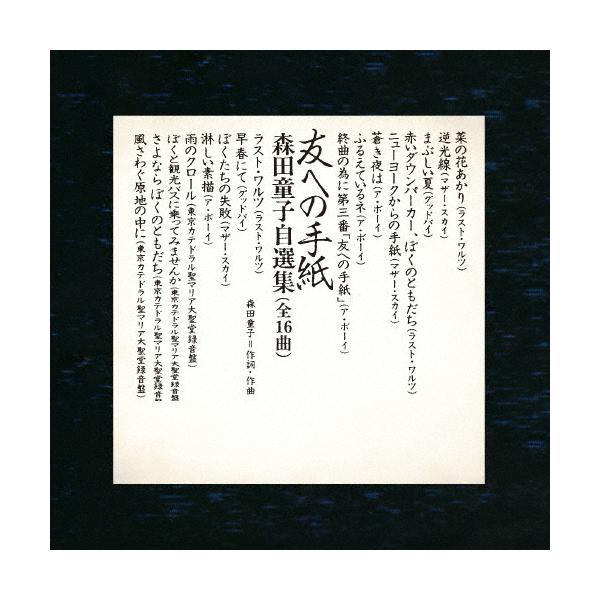 菜の花あかり(ラスト・ワルツ)
逆光線(マザー・スカイ)
まぶしい夏(グッドバイ)
赤いダウンパーカー、ぼくのともだち(ラスト・ワルツ)
ニューヨークからの手紙(マザー・スカイ)
蒼き夜は(ア・ボーイ)
ふるえているネ(ア・ボーイ)
終曲の為に第三番「友への手紙」(ア・ボーイ)
友への手紙
森田童子自選集(全16曲)
森田童子=作詞・作曲
ラスト・ワルツ(ラスト・ワルツ)
早春にて(グッドバイ)
ぼくたちの失敗(マザー・スカイ)
淋しい素描(ア・ボーイ)
雨のクロール(東京カテドラル聖マリア大聖堂録音盤)
ぼくと観光バスに乗ってみませんか(東京カテドラル聖マリア大聖堂録音盤)
さよならぼくのともだち(東京カテドラル聖マリア大聖堂録音盤)
風さわぐ原地の中に(東京カテドラル聖マリア大聖堂録音盤)